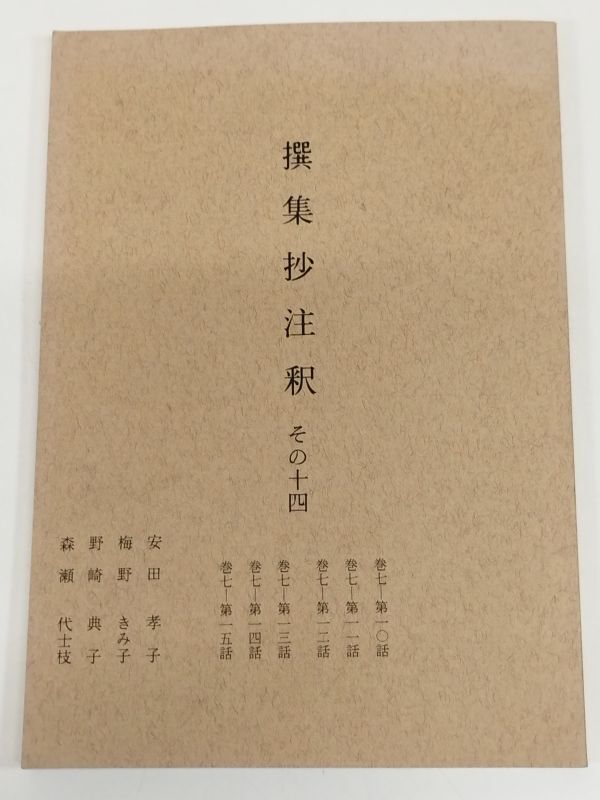 撰集抄注釈 その十四
巻七―第一〇話
巻七―第一一話
巻七―第一二話
巻七―第一三話
巻七―第一四話
巻七―第一五話
安田 孝子
梅野 きみ子
野崎 典子
森瀬 代士枝